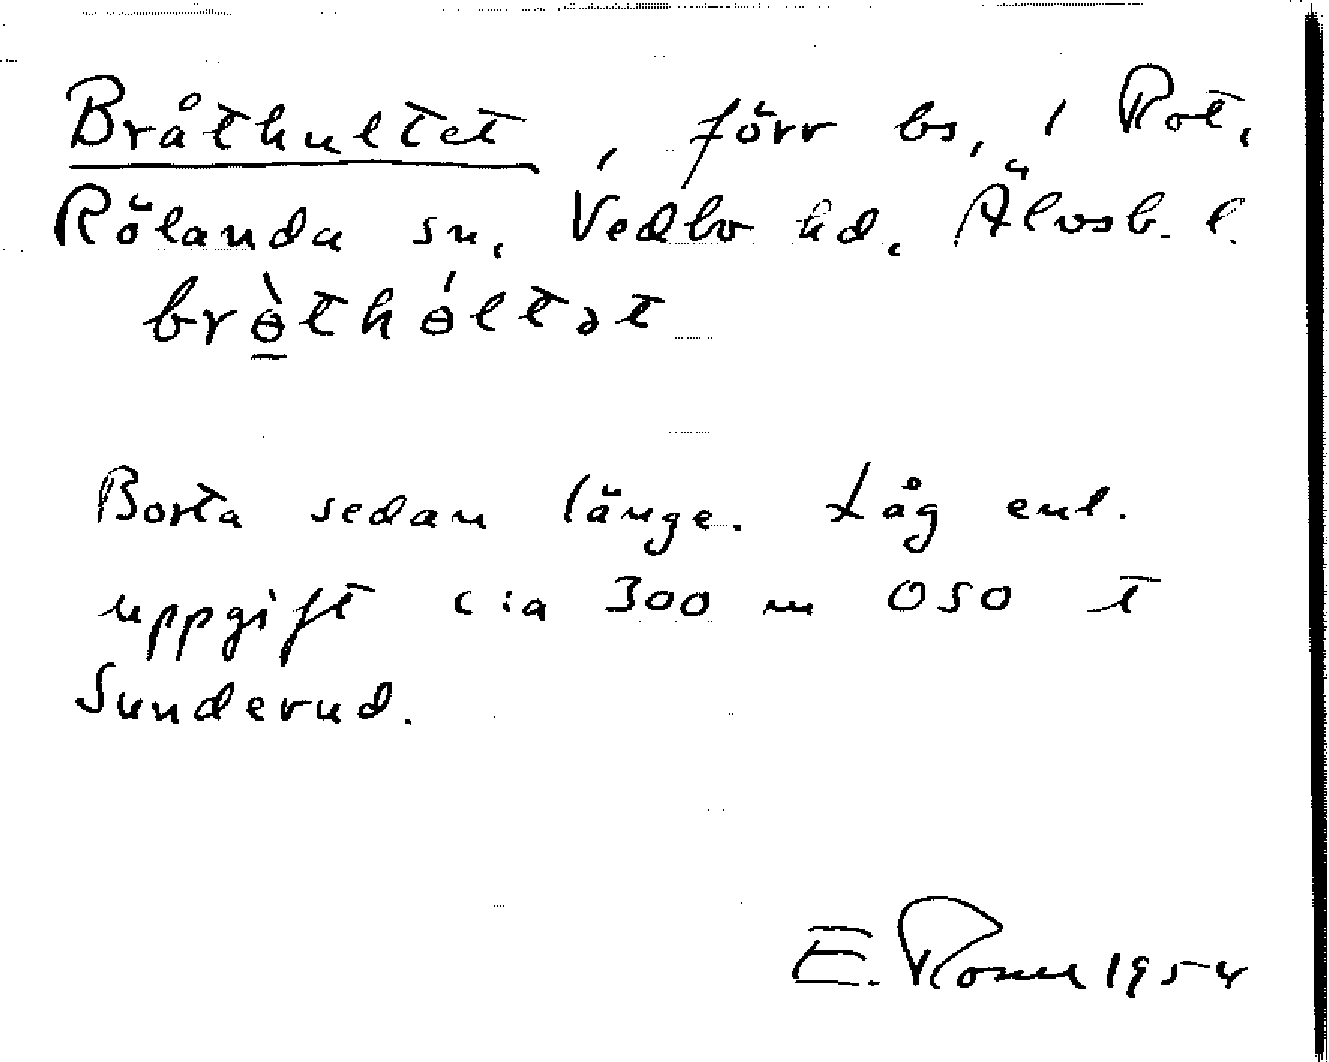 Bråthultet, förr bs, / Rot,
Rölanda sn, Vedbo hd, Älvsb. l.
brɵ̀thɵ́ltət
Borta sedan länge. Låg enl.
uppgift c:a 300 m OSO t
Sunderud.
E. Rosell 1954